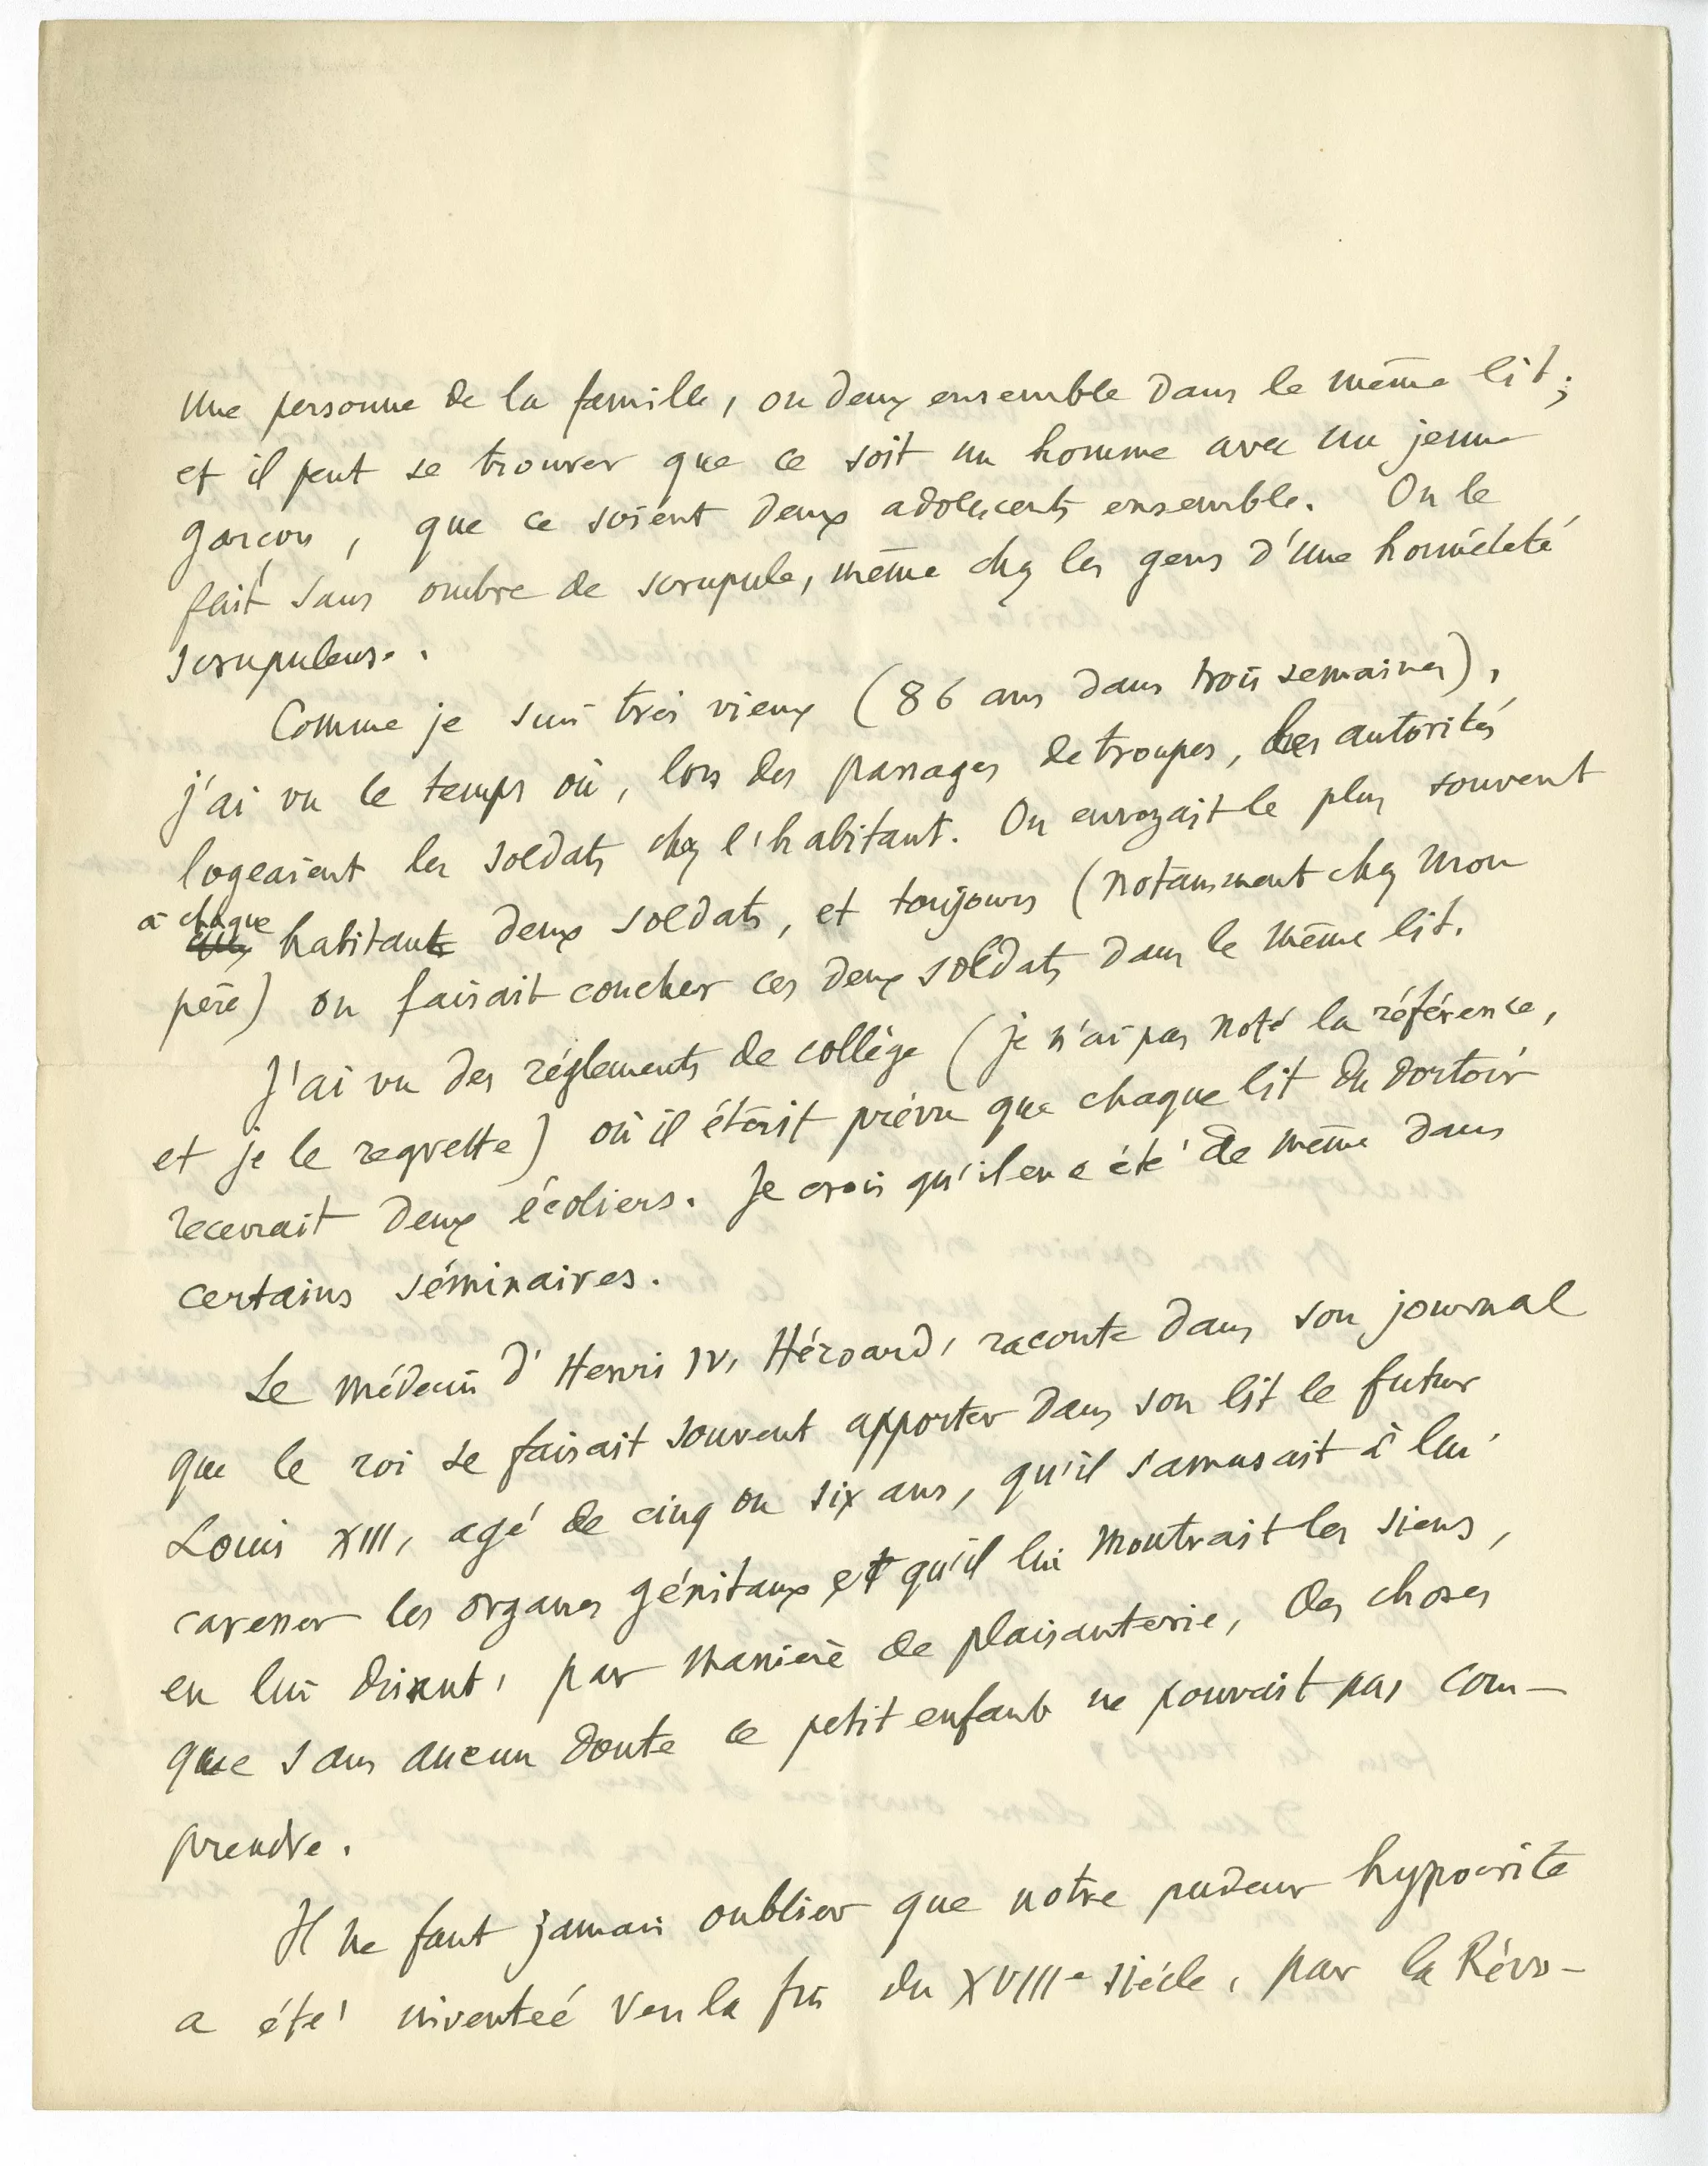 une personne de la famille, ou deux ensemble dans le même lit ;
et il peut se trouver que ce soit un homme avec un jeune
garçon, que ce soient deux adolescents ensemble. On le
fait sans ombre de scrupule, même chez les gens d'une honnêteté
scrupuleuse.
Comme je suis très vieux (86 ans dans trois semaines),
j'ai vu le temps où, lors des passages de troupes, les autorités
logeaient les soldats chez l'habitant. On envoyait le plus souvent
à chaque
habitant deux soldats, et toujours (notamment chez mon
père) on faisait coucher ces deux soldats dans le même lit.
J'ai vu des règlements de collège (je n'ai pas noté la référence,
et je le regrette) où il était prévu que chaque lit du dortoir
recevrait deux écoliers. Je crois qu'il en a été de même dans
certains séminaires.
Le médecin d'Henri IV, Héroard, raconte dans son journal
que le roi se faisait souvent apporter dans son lit le futur
Louis XIII, agé de cinq ou six ans, qu'il s'amusait à lui
caresser les organes génitaux et qu'il lui montrait les siens,
en lui disant, par manière de plaisanterie, des choses
que sans aucun doute ce petit enfant ne pouvait pas com-
prendre.
Il ne faut jamais oublier que notre pudeur hypocrite
a été inventée vers la fin du XVIIIe siècle, par la Révo-